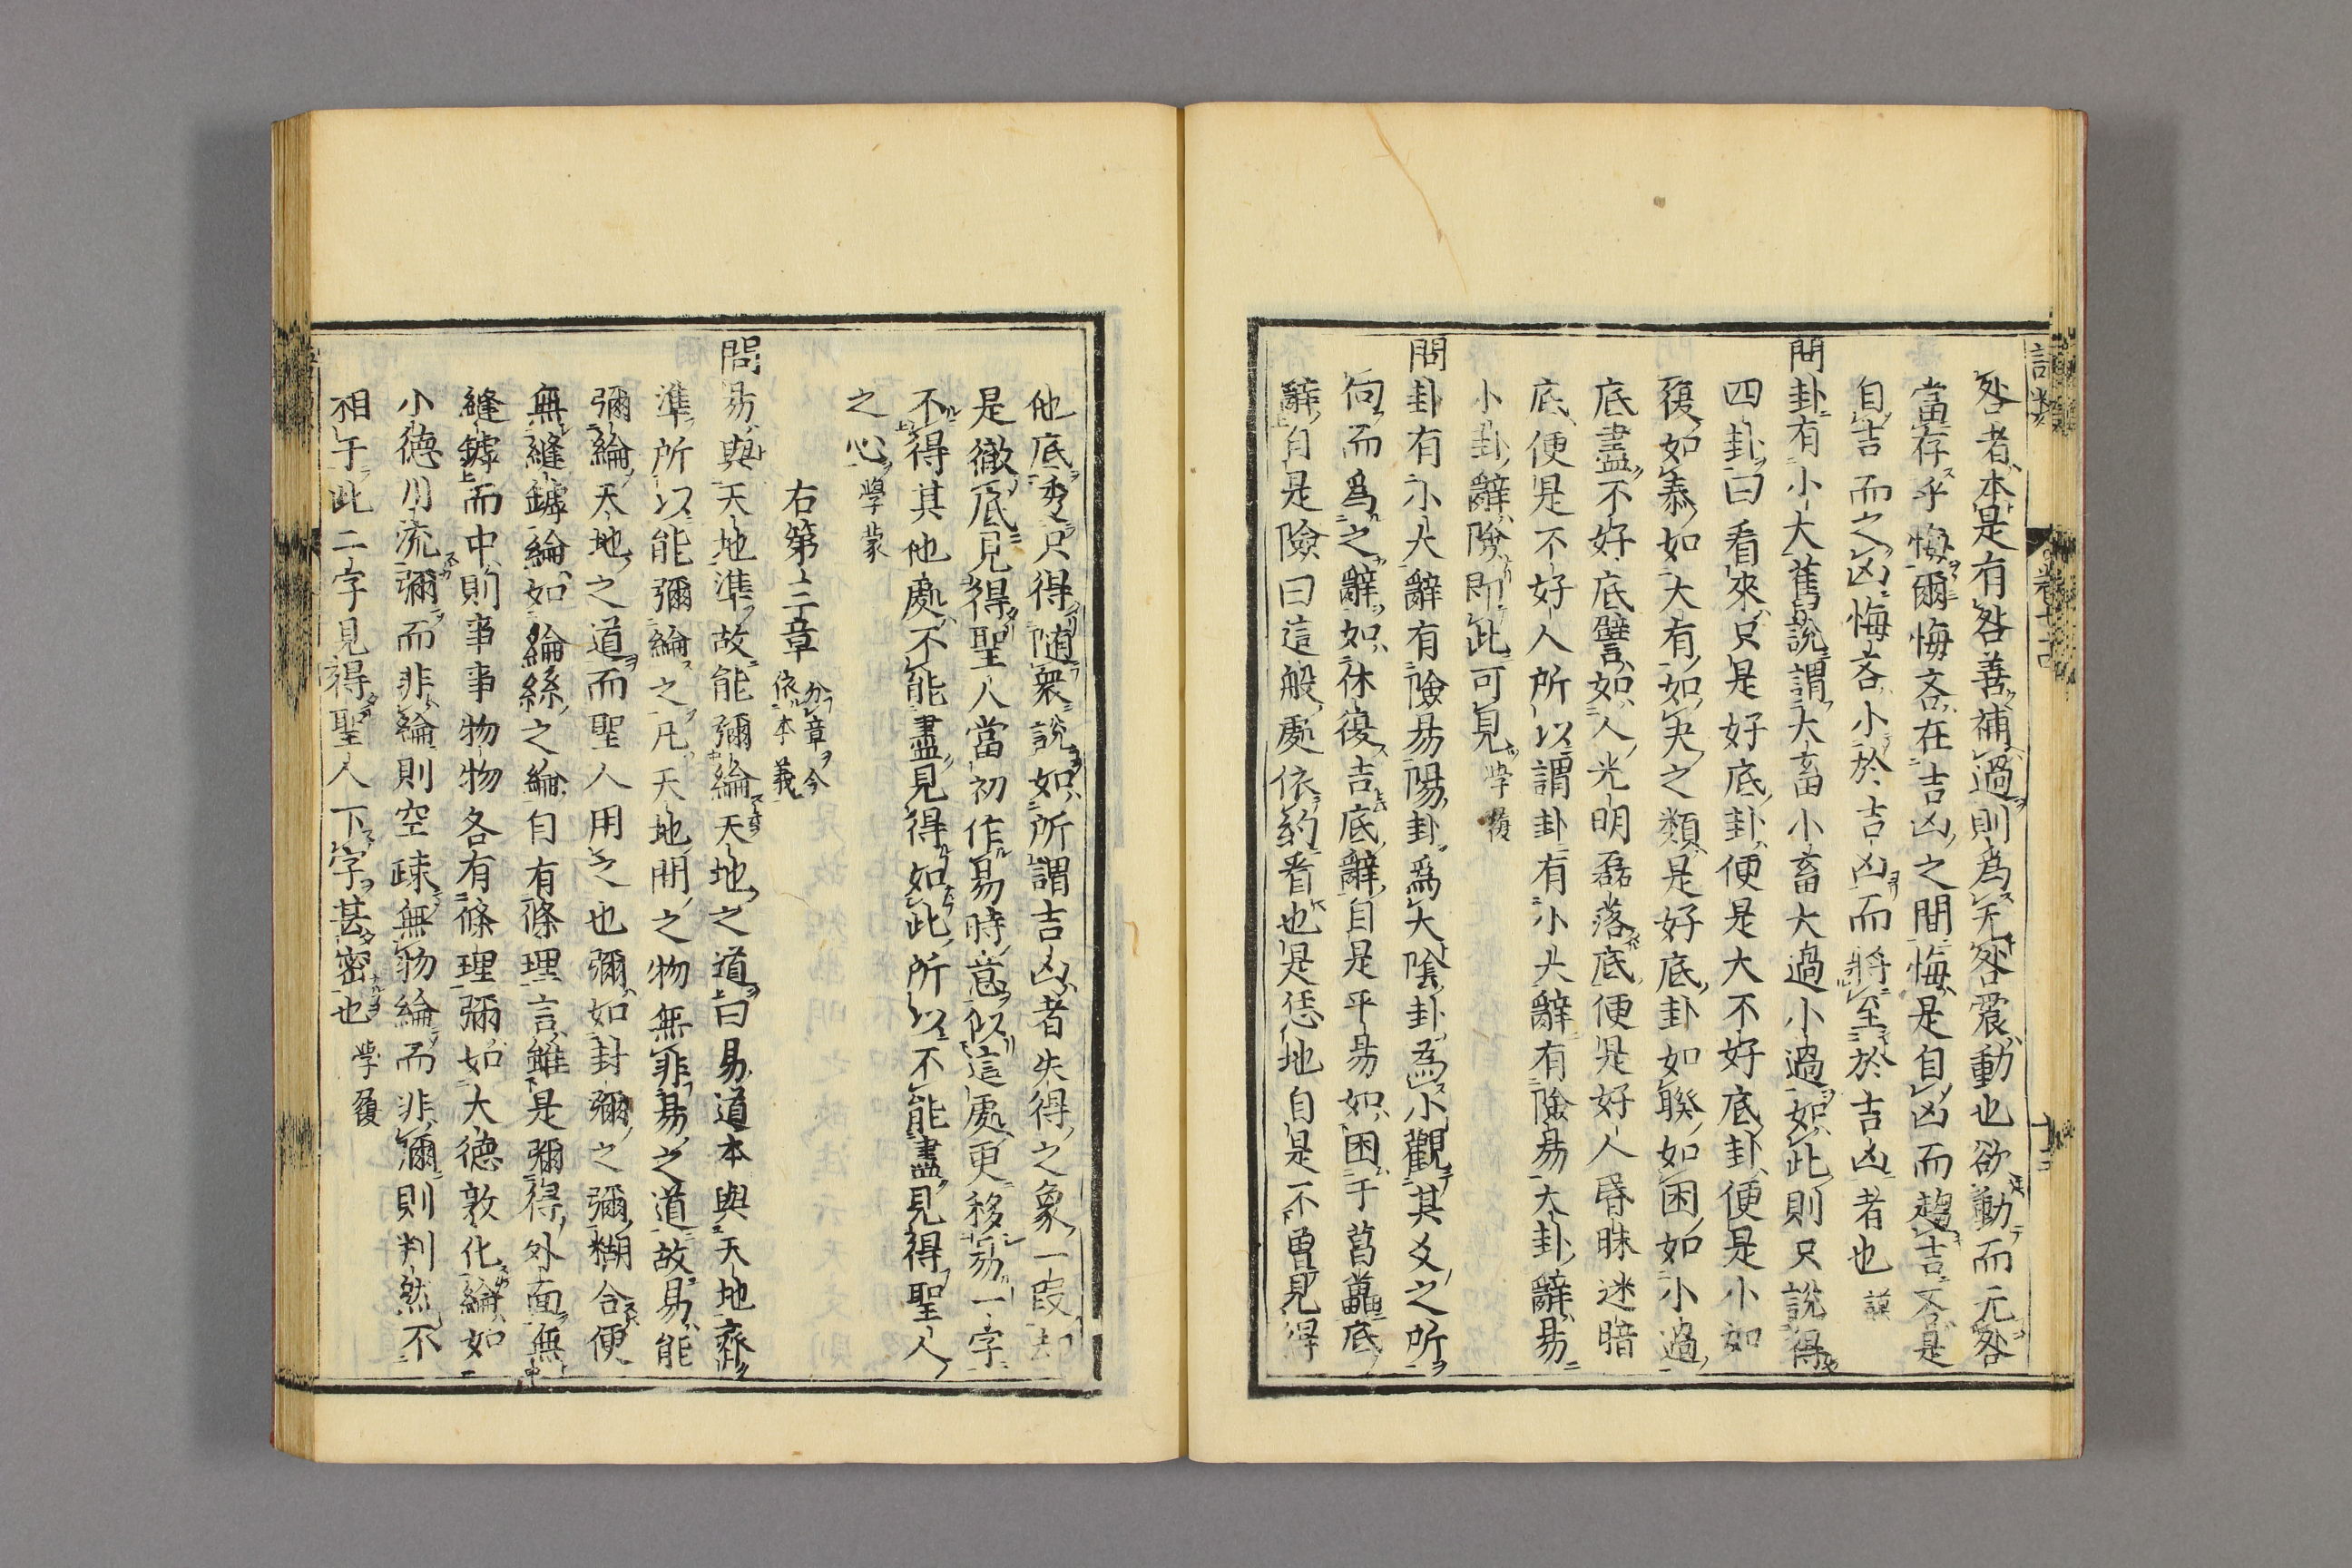 咎者本是有咎善補過則爲无咎震動也欲動而无咎
當存乎悔爾悔吝在吉凶之間悔是自凶而趨吉吝是
自吉而之凶悔吝小於吉凶而將至於吉凶者也 謨
問卦有小大舊說謂大畜小畜大過小過如此則只說得
四卦曰看來只是好底卦便是大不好底卦便是小如
復如泰如大有如夬之類是好底卦如睽如困如小過
底盡不好底譬如人光明磊落底便是好人昏昧迷暗
底便是不好人所以謂卦有小大辭有險易大卦辭易
小卦辭險即此可見 学履
問卦有小大辭有險易陽卦爲大陰卦爲小觀其爻之所
向而爲之辭如休復吉底辭自是平易如困于葛藟底
辭自是險曰這般處依約看也是恁地自是不曾見得
他底透只得隨衆說如所謂吉凶者失得之象一段却
是徹底見得聖人當初作易時意似這處更移易一字
不得其他處不能盡見得如此所以不能盡見得聖人
之心 學蒙
右第三章 分章今依本義
問易與天地準故能彌綸天地之道曰易道本與天地齊
準所以能彌綸之凡天地間之物無非易之道故易能
彌綸天地之道而聖人用之也彌如封彌之彌糊合便
無縫罅綸如綸絲之綸自有條理言雖是彌得外面無
縫罅而中則事事物物各有條理彌如大德敦化綸如
小德川流彌而非綸則空疎無物綸而非彌則判然不
相干此二字見得聖人下字甚密也 學履